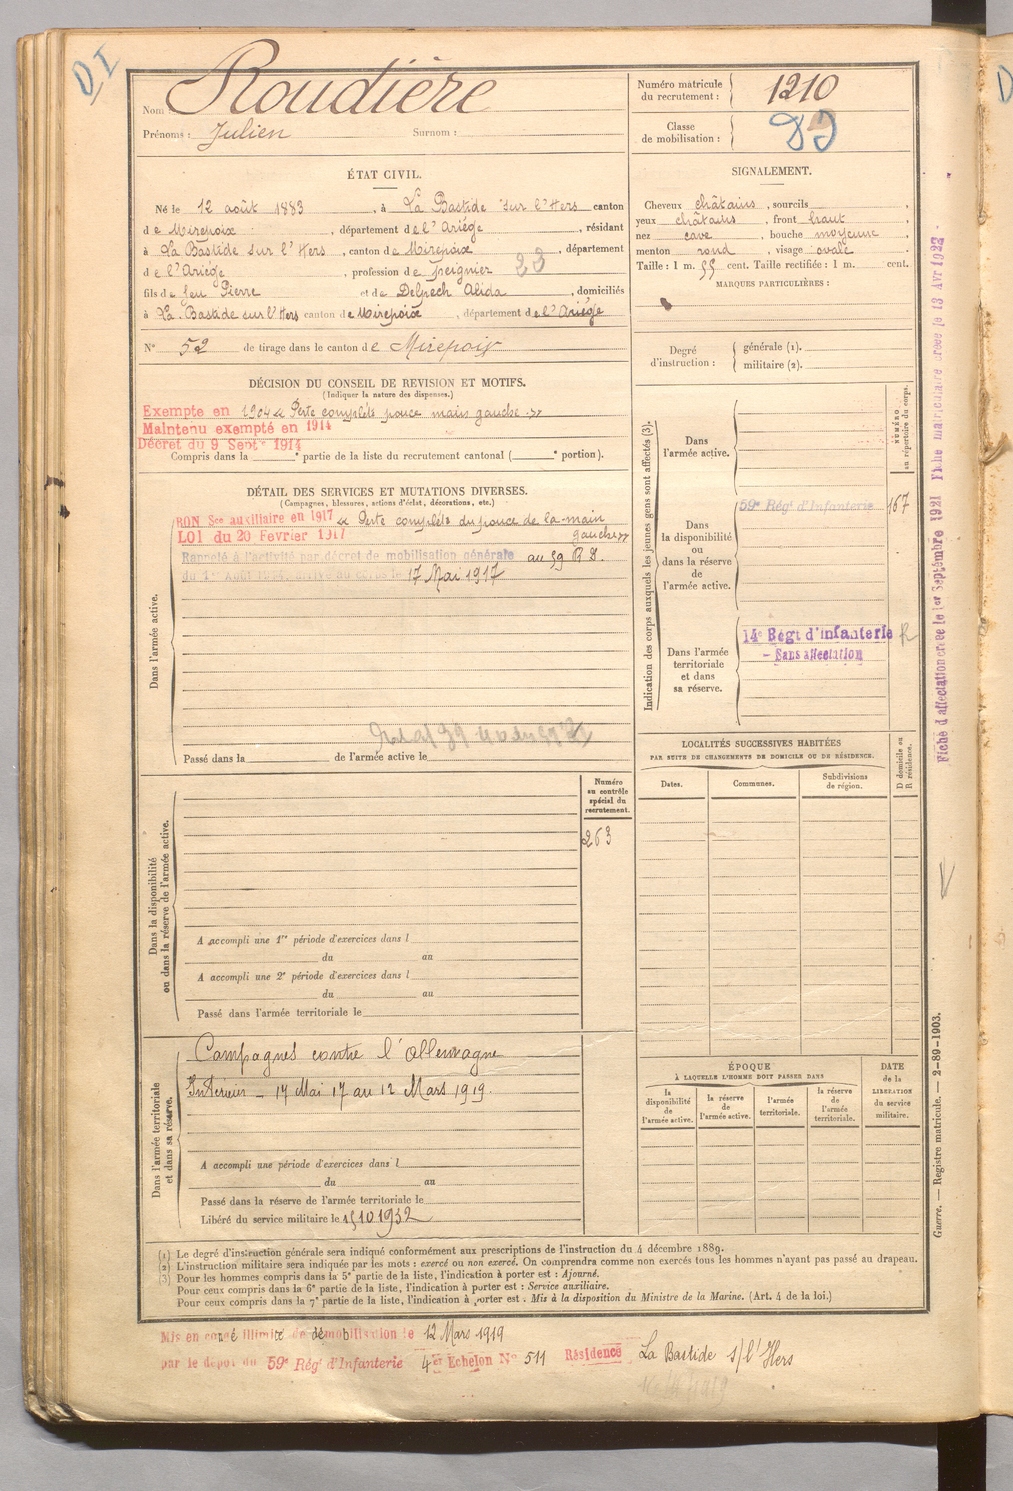 DI
Nom : Roudière
Prénoms : Julien Surnom :
Numéro matricule du recrutement : 1210
Classe de mobilisation :
ÉTAT CIVIL.
Né le 12 août 1883, à La Bastide sur l'Hers canton
de Mirepoix, département de l'Ariège, résidant
à La Bastide sur l'Hers, canton de Mirepoix, département
de l'Ariège, profession de peignier 23
fils de feu Pierre et de Delpech Alida, domiciliés
à La Bastide sur l'Hers canton de Mirepoix, département de l'Ariège
N° 52 de tirage dans le canton de Mirepoix
SIGNALEMENT.
Cheveux châtains, sourcils
yeux châtains, front haut
nez cave, bouche moyenne
menton rond, visage ovale
Taille : 1 m. 55 cent. Taille rectifiée : 1 m. cent.
MARQUES PARTICULIÈRES :
Degré d'instruction : générale (1).
militaire (2).
DÉCISION DU CONSEIL DE REVISION ET MOTIFS.
(Indiquer la nature des dispenses.)
Exempte en 1904 « Perte complète pouce main gauche »
Maintenu exempté en 1914
Décret du 9 Septre 1914
Compris dans la e partie de la liste du recrutement cantonal ( e portion).
DÉTAIL DES SERVICES ET MUTATIONS DIVERSES.
(Campagnes, blessures, actions d'éclat, décorations, etc.)
Dans l'armée active.
BON Sce auxiliaire en 1917 « Perte complète du pouce de la main
LOI du 20 Fevrier 1917 gauche »
Rappelé à l'activité par décret de mobilisation générale au 59 R I.
arrivé au corps le 17 Mai 1917
Passé dans la de l'armée active le
Indication des corps auxquels les jeunes gens sont affectés (3).
NUMÉRO au répertoire du corps.
Dans l'armée active.
Dans la disponibilité ou dans la réserve de l'armée active.
59e Régt d'Infanterie 167
Dans l'armée territoriale et dans sa réserve.
14e Régt d'infanterie R
- Sans affectation
LOCALITÉS SUCCESSIVES HABITÉES
PAR SUITE DE CHANGEMENTS DE DOMICILE OU DE RÉSIDENCE.
D domicile ou R résidence.
Dates. Communes. Subdivisions de région.
Dans la disponibilité ou dans la réserve de l'armée active.
Numéro au contrôle spécial du recrutement.
263
A accompli une 1re période d'exercices dans l
du au
A accompli une 2e période d'exercices dans l
du au
Passé dans l'armée territoriale le
Dans l'armée territoriale et dans sa réserve.
Campagnes contre l'Allemagne
Intérieur – 17 Mai 17 au 12 Mars 1919.
A accompli une période d'exercices dans l
du au
Passé dans la réserve de l'armée territoriale le
Libéré du service militaire le 15 10 1932
ÉPOQUE
À LAQUELLE L'HOMME DOIT PASSER DANS
la disponibilité de l'armée active.
la réserve de l'armée active.
l'armée territoriale.
la réserve de l'armée territoriale.
DATE de la LIBÉRATION du service militaire.
(1) Le degré d'instruction générale sera indiqué conformément aux prescriptions de l'instruction du 4 décembre 1889.
(2) L'instruction militaire sera indiquée par les mots : exercé ou non exercé. On comprendra comme non exercés tous les hommes n'ayant pas passé au drapeau.
(3) Pour les hommes compris dans la 5e partie de la liste, l'indication à porter est : Ajourné.
Pour ceux compris dans la 6e partie de la liste, l'indication à porter est : Service auxiliaire.
Pour ceux compris dans la 7e partie de la liste, l'indication à porter est : Mis à la disposition du Ministre de la Marine. (Art. 4 de la loi.)
Mis en congé illimité de démobilisation le 12 Mars 1919
par le dépot du 59e Régt d'Infanterie 4er Echelon N° 511 Résidence La Bastide s/l'Hers
Fiche d'affectation créée le 1er Septembre 1921 Fiche matriculaire créée le 13 Avr 1922
Guerre. — Registre matricule. — 2-89-1903.